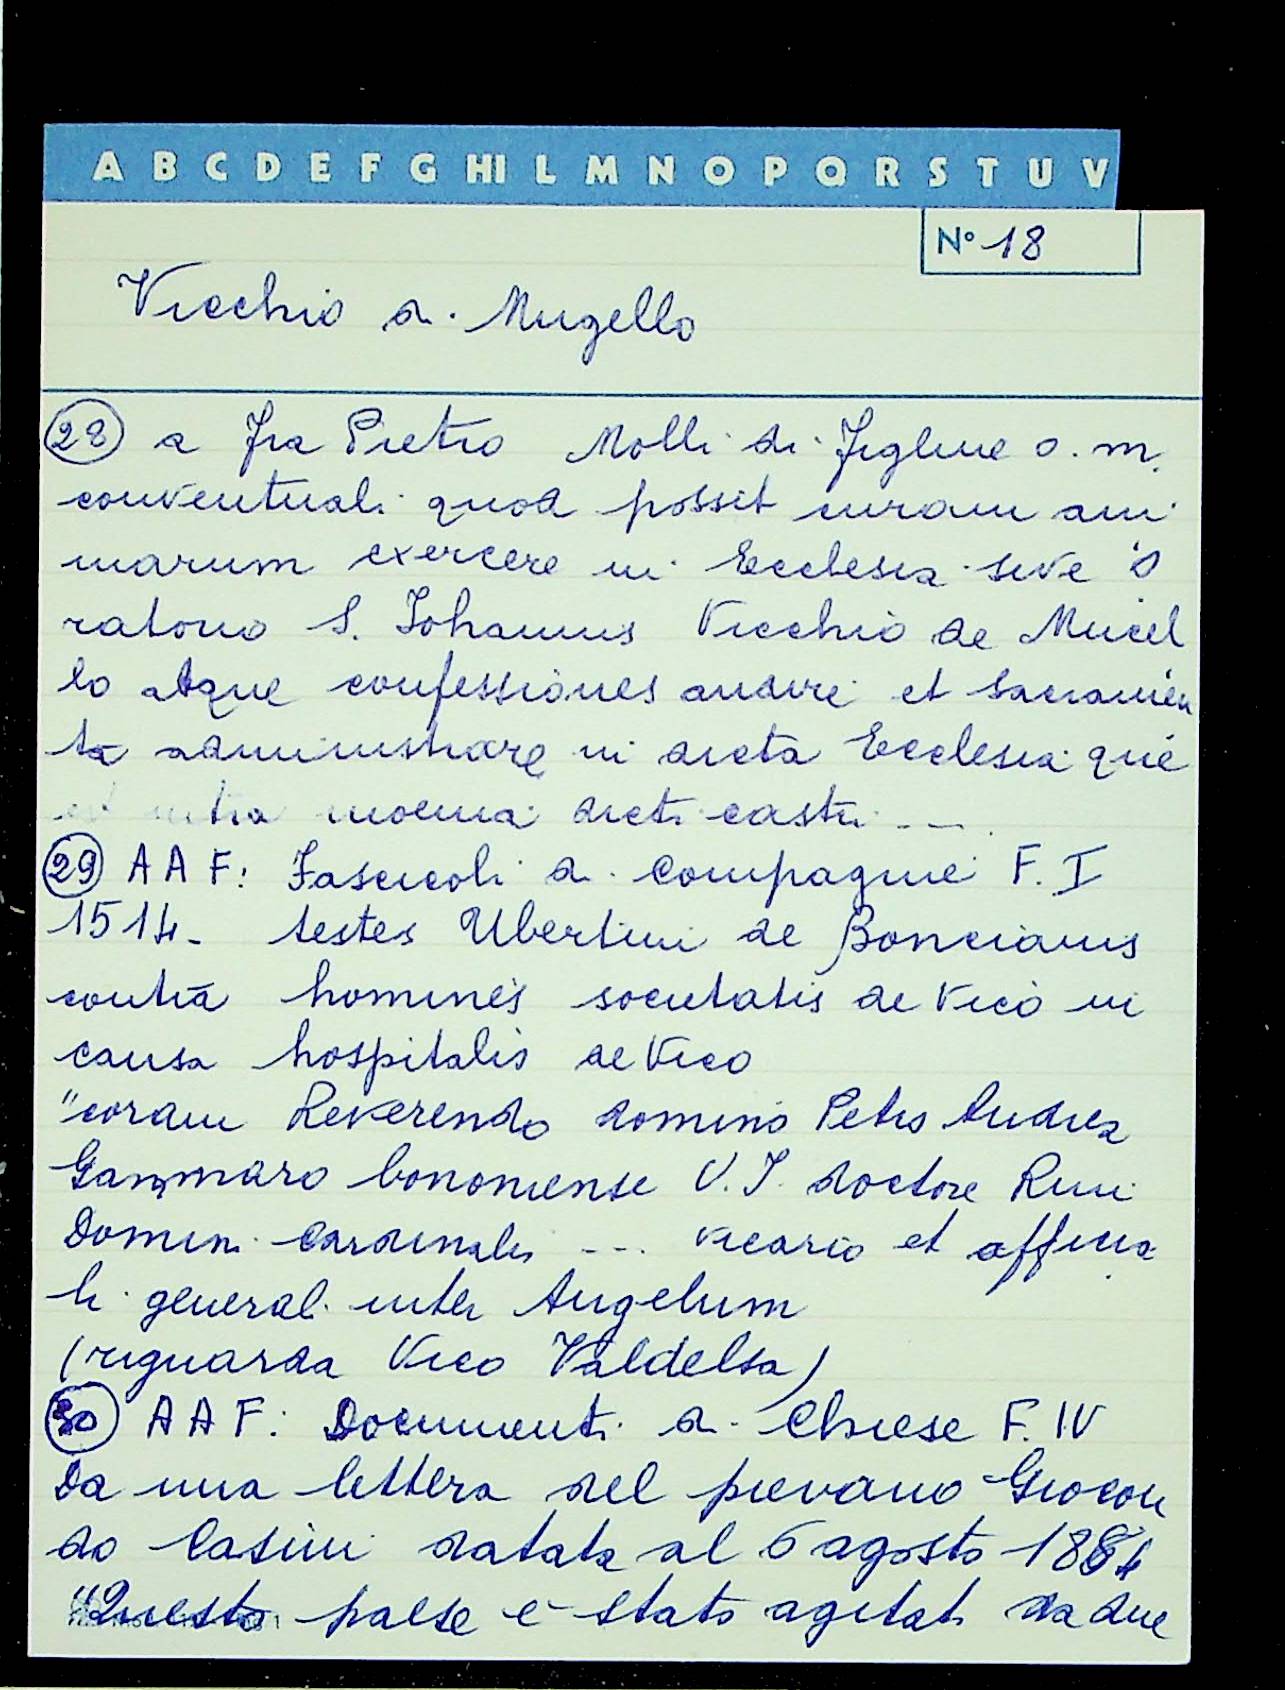 A B C D E F G HI L M N O P Q R S T U V
N° 18
Vicchio di Mugello
28 a Fra Pietro Molli di Figline o. m.
conventuali quod possit curam ani
marum exercere in Ecclesia sive O
ratorio S. Johannis Vicchio de Mucel
lo atque confessiones audire et sacramen
ta administrare in dicta Ecclesia que
est intra moenia dicti castri ---
29 A A F: Fascicoli di Compagnie F. I
1514- testes Ubertini de Boncianis
contra homines societatis de Vico in
causa hospitalis de Vico
"coram Reverendo domino Petro Andrea
Gammaro bononiense V. J. doctore R.mi
Domini Cardinalis --- vicario et officia
li generali inter Angelum
(riguarda Vico Valdelsa)
30 A A F: Documenti di Chiese F. IV
Da una lettera del pievano Giocon
do Casini datata al 6 agosto 1884
"Questo paese è stato agitato da due